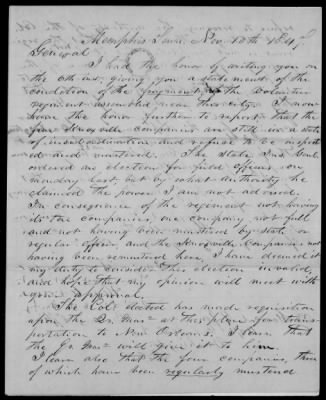 Memphis Tenn. Nov. 10th 1847
General
I had the honor of writing you on
the 6th inst. giving you a statement of the
condition of the fragments of the volunteer
regiment assembled near this city. I now
have the honor further to report that the
four Knoxville companies are still in a state
of insubordination and refuse to be inspect
ed and mustered. The State Ins. Genl.
ordered an election for field officers, on
monday last. On what authority he
claimed the power I am not advised.
In consequence of the regiment not having
its ten companies, one company not full
and not having been mustered by state or
regular officer, and the Knoxville Companies not
having been remustered here, I have deemed it
my duty to consider this election invalid,
and hope that my opinion will meet with
your approval.
The Col. elected has made requisition
upon the Qr. Mas. at this place for trans-
portation to New Orleans. I learn that
the Qr. Mas. will give it to him.
I learn also that the four companies, three
of which have been regularly mustered